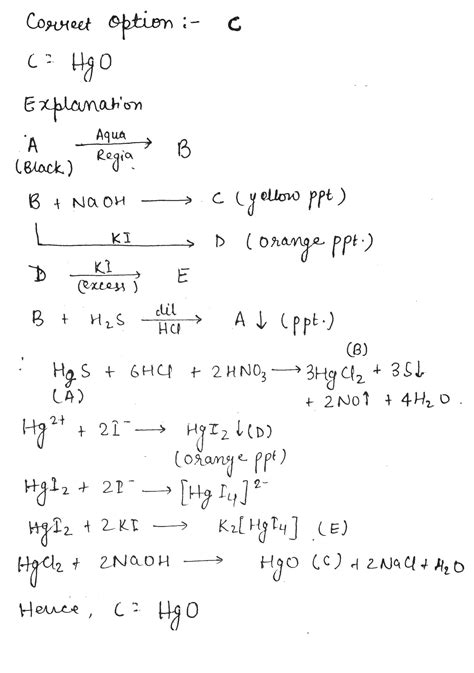 Correct Option :- C
C = HgO
Explanation
A (Black) Aqua Regia → B
B + NaOH → C (yellow ppt)
KI → D (orange ppt.)
D KI (excess) → E
B + H₂S dil HCl → A ↓ (ppt.)
∴ HgS (A) + 6HCl + 2HNO₃ → 3HgCl₂ (B) + 3S↓
+ 2NO↑ + 4H₂O.
Hg²⁺ + 2I⁻ → HgI₂ ↓ (D)
(orange ppt)
HgI₂ + 2I⁻ → [HgI₄]²⁻
HgI₂ + 2KI → K₂[HgI₄] (E)
HgCl₂ + 2NaOH → HgO (C) + 2NaCl + H₂O
Hence, C = HgO